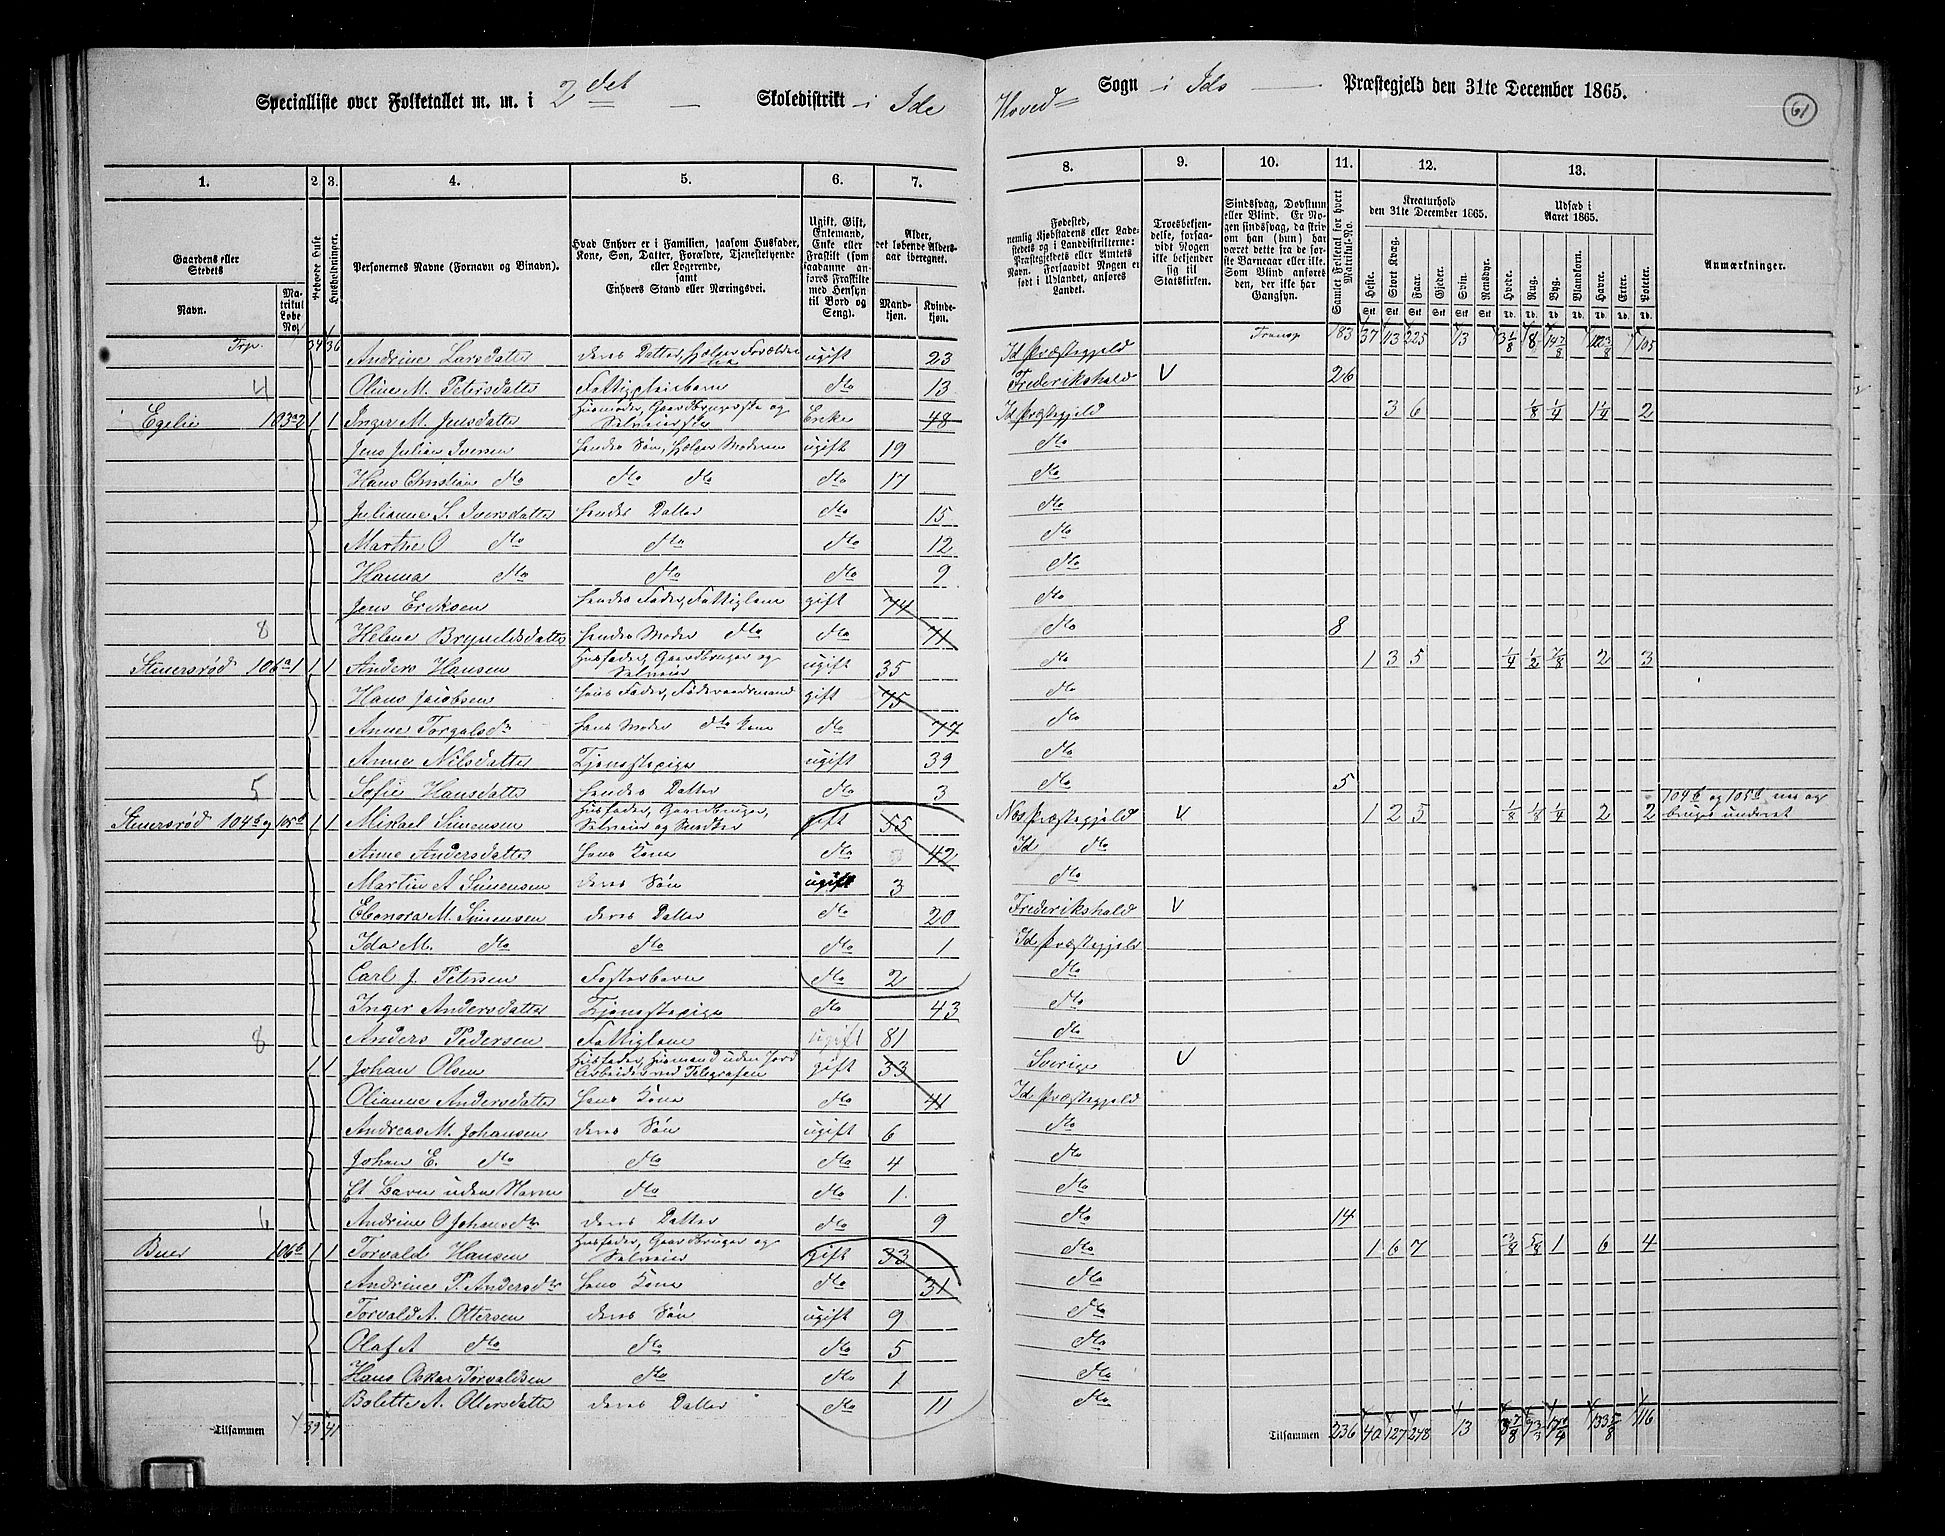 Specialliste over Folketallet m. m. i 2det Skoledistrikt i Ide Hoved Sogn i Ids Præstegjeld den 31te December 1865.
61
1. 2. 3. 4. 5. 6. 7. 8. 9. 10. 11. 12. 13.
Gaardens eller Stedets
Navn.
Matrikul Løbe No.
Beboede Huse.
Husholdninger.
Personernes Navne (Fornavn og Binavn).
Hvad Enhver er i Familien, saasom Husfader, Kone, Søn, Datter, Forældre, Tjenestetyende eller Logerende, samt Enhvers Stand eller Næringsvei.
Ugift, Gift, Enkemand, Enke eller Fraskilt (som saadanne anføres Fraskilte med Hensyn til Bord og Seng).
Alder, det løbende Aldersaar iberegnet.
Mandkjøn. Kvindekjøn.
Fødested, nemlig Kjøbstadens eller Ladestedets og i Landdistrikterne: Præstegjeldets eller Amtets Navn. Forsaavidt Nogen er født i Udlandet, anføres Landet.
Troesbekjendelse, forsaavidt Nogen ikke bekjender sig til Statskirken.
Sindssvag, Døvstum eller Blind. Er Nogen sindssvag, da skrives om han (hun) har været dette fra de første Barneaar eller ikke. Som Blind anføres den, der ikke har Gangsyn.
Samlet Folketal for hvert Matrikul-No.
Kreaturhold den 31te December 1865.
Heste. Stort Kvæg. Faar. Gjeder. Svin. Rensdyr.
Udsæd i Aaret 1865.
Hvede. Rug. Byg. Blandkorn. Havre. Erter. Poteter.
Anmærkninger.
Trp. 34 36 Andrine Larsdatter deres Datter, hjelper Forældrene ugift 23 Id Præstegjeld Transp 183 37 113 225 13 3 1/8 8 105
4 Oline M. Petersdatter Fattigpleiebarn do 13 Frederikshald V 26
Egelie 103a2 1 1 Inger M. Jensdatter Husmoder, Gaardbrugerske og Selveierske Enke 48 Id Præstegjeld 3 6 1/8 1/4 1 1/4 2
Jens Julian Iversen hendes Søn, hjelper Moderen ugift 19 do
Hans Christian do do do do 17 do
Julianne S. Iversdatter hendes Datter do 15 do
Marthe O do do do 12 do
Hanna do do do 9 do
Jens Eriksen hendes Fader, Fattiglem gift 74 do
8 Helene Brynildsdatter hendes Moder do do 71 do 8
Stuersrød 106a1 1 1 Anders Hansen Husfader, Gaardbruger og Selveier ugift 35 do 1 3 5 1/4 1/2 7/8 2 3
Hans Jacobsen hans Fader, Føderaadsmand gift 75 do
Anne Torgalsdr hans Moder do Kone do 77 do
Anne Nilsdatter Tjenestepige ugift 39 do
5 Sofie Hansdatter hendes Datter do 3 do 5
Stuersrød 104b og 105b 1 1 Mikael Simensen Husfader, Gaardbruger, Selveier og Snedker gift 55 Næs Præstegjeld V 1 2 5 1/8 1/8 1/4 2 2 104b og 105b
Anne Andersdatter hans Kone do 42 Id do
Martin A Simensen deres Søn ugift 3 do
Elenora M. Simensen deres Datter do 20 Frederikshald V
Ida M. do do do 1 Id Præstegjeld
Carl J. Petersen Fosterbarn do 2 do
Inger Andersdatter Tjenestepige do 43 do
8 Anders Pedersen Fattiglem ugift 81 do
1 1 Johan Olsen Husfader, Husmand uden Jord Arbeider ved Telegrafen gift 33 Sverige V
Olianne Andersdatter hans Kone do 41 Id Præstegjeld
Andreas M. Johansen deres Søn ugift 6 do
Johan E. do do do 4 do
Et Barn uden Navn do do 1 do
6 Andrine O Johansdr deres Datter do 9 do 14
Buer 106b 1 1 Torvald Hansen Husfader, Gaardbruger og Selveier gift 33 do 1 6 7 3/8 5/8 1 6 4
Andrine P. Andersdr hans Kone do 31 do
Torvald A. Ottersen deres Søn ugift 9 do
Olaf A do do do 5 do
Hans Oskar Torvaldsen do do 1 do
Bolette A. Ottersdatter deres Datter do 11 do
Tilsammen 39 41 Tilsammen 236 40 127 248 13 116